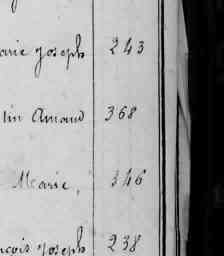 arie Joseph 243
tin Amand 368
Marie, 346
nçois Joseph 238